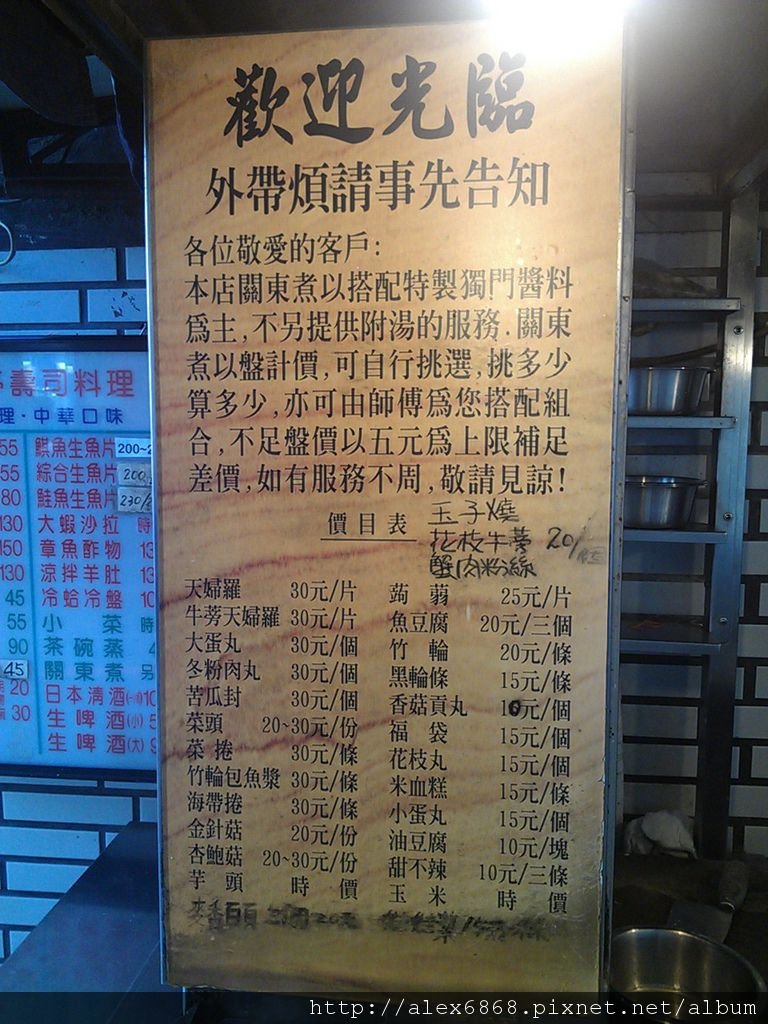 歡迎光臨
外帶煩請事先告知
各位敬愛的客戶:
本店關東煮以搭配特製獨門醬料
爲主,不另提供附湯的服務.關東
煮以盤計價,可自行挑選,挑多少
算多少,亦可由師傅爲您搭配組
合,不足盤價以五元爲上限補足
差價,如有服務不周,敬請見諒!
價目表
玉子燒
花枝牛蒡 20/
蟹肉粉絲
天婦羅 30元/片
牛蒡天婦羅 30元/片
大蛋丸 30元/個
冬粉肉丸 30元/個
苦瓜封 30元/個
菜頭 20~30元/份
菜捲 30元/條
竹輪包魚漿 30元/條
海帶捲 30元/條
金針菇 20元/份
杏鮑菇 20~30元/份
芋頭 時價
蒟蒻 25元/片
魚豆腐 20元/三個
竹輪 20元/條
黑輪條 15元/條
香菇貢丸 10元/個
福袋 15元/個
花枝丸 15元/個
米血糕 15元/條
小蛋丸 15元/個
油豆腐 10元/塊
甜不辣 10元/三條
玉米 時價
壽司料理
理·中華口味
55 旗魚生魚片 200~
55 綜合生魚片 200
80 鮭魚生魚片 230/
130 大蝦沙拉 時
150 章魚酢物 13
130 涼拌羊肚 13
45 冷蛤冷盤 10
55 小菜 時
90 茶碗蒸 4
45 關東煮 另
20 日本清酒(一)10
30 生啤酒(小) 5
生啤酒(大) 9
http://alex6868.pixnet.net/album